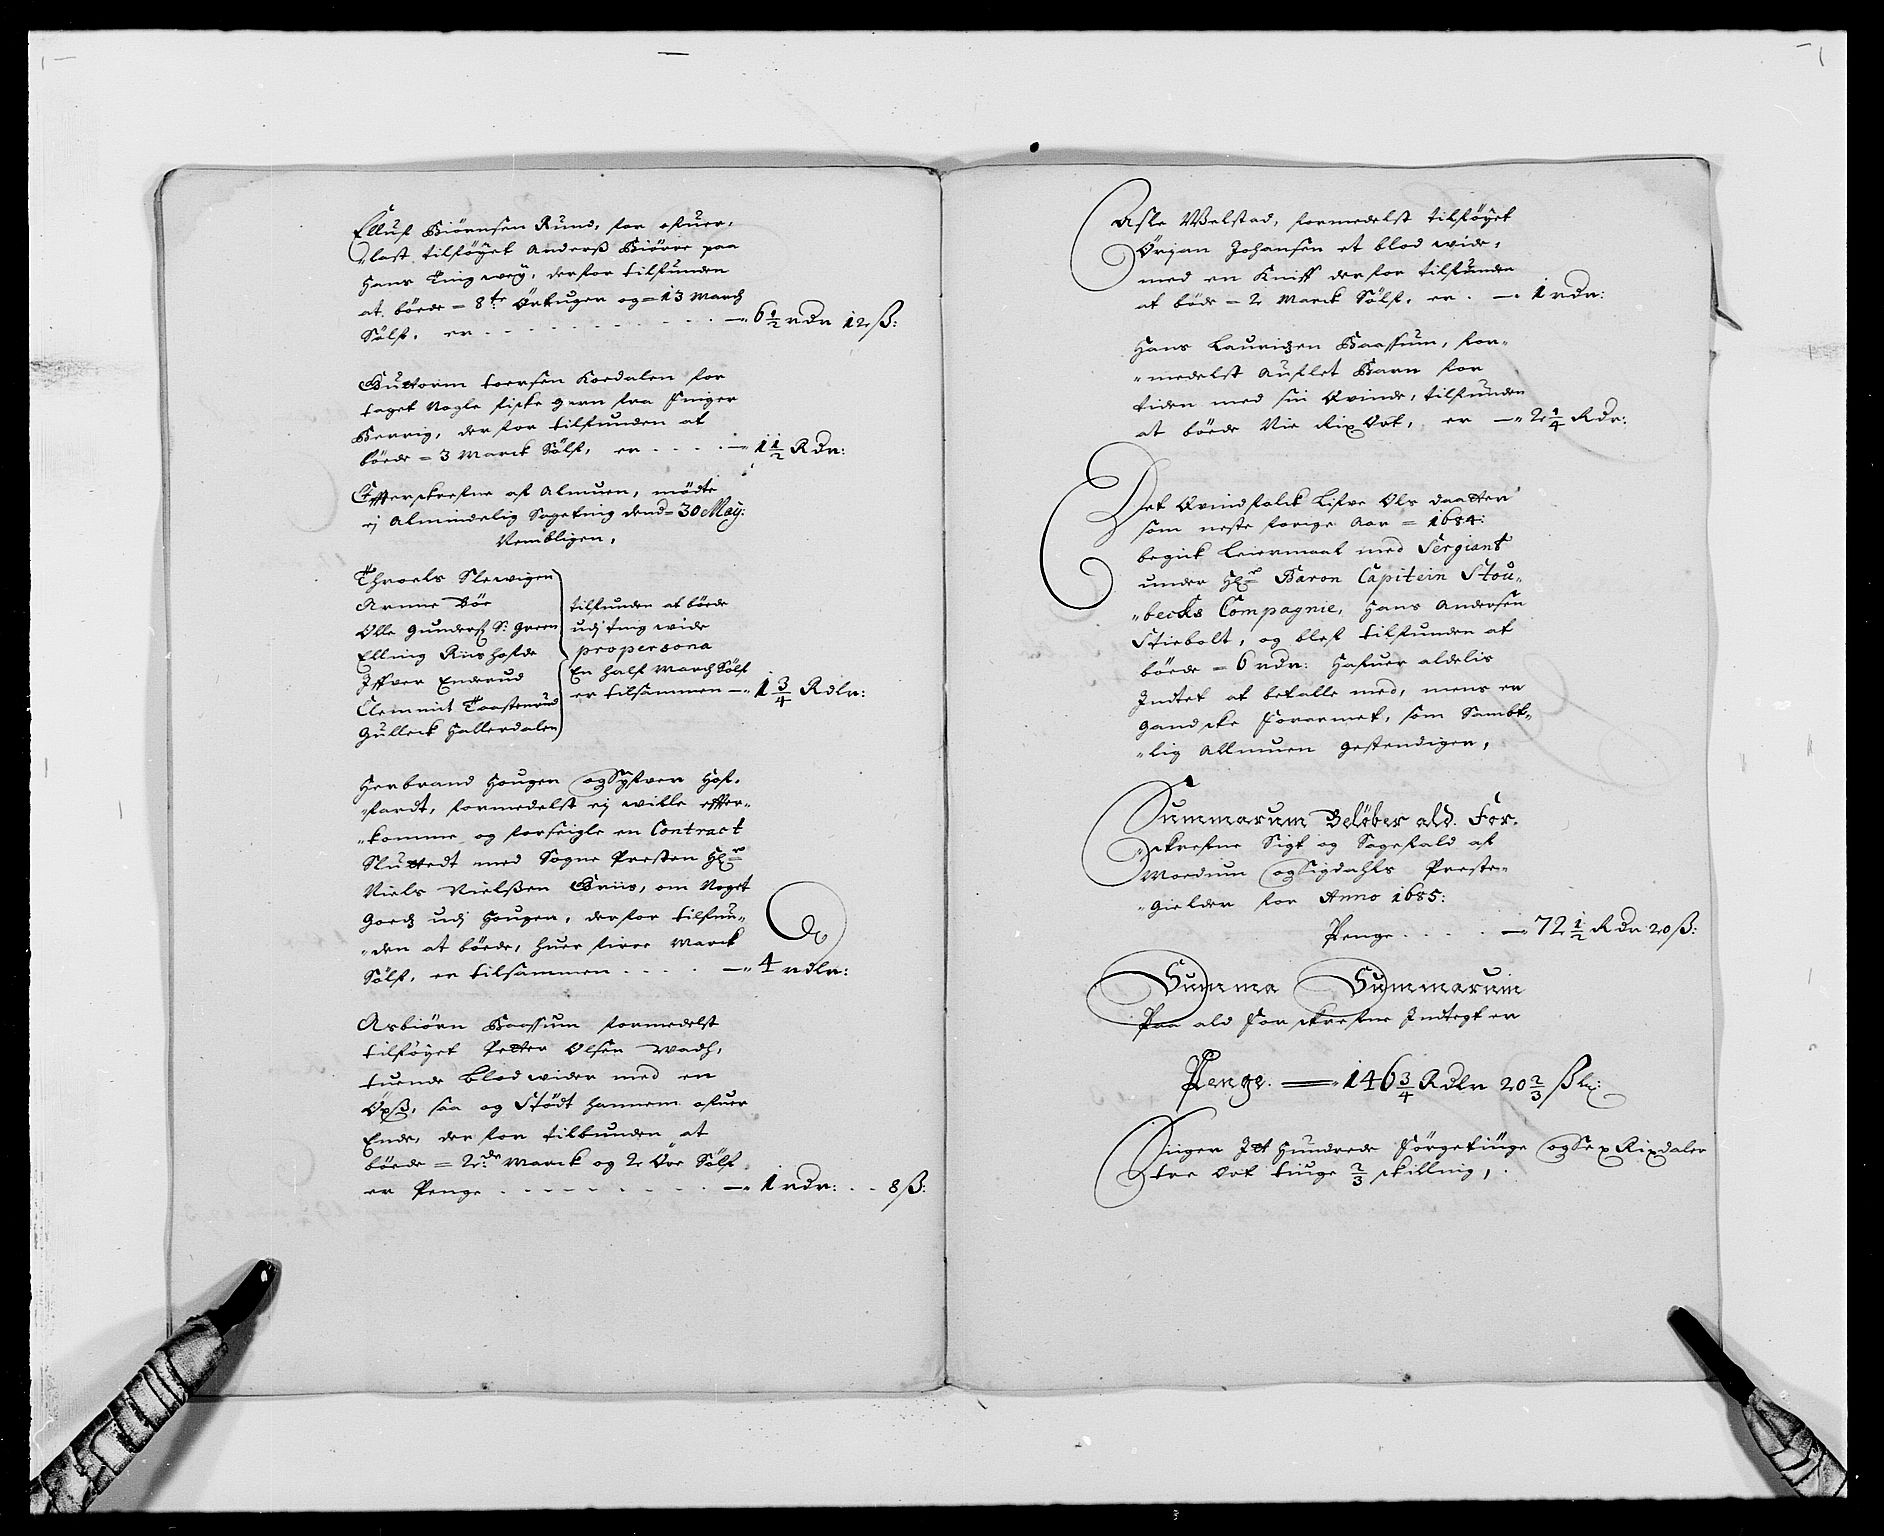 Elluf Biörnsen Rund, for ofuer,
"last tilføyet Anderß Biörre paa
Hans Tingwey, derfor tilfunden
at böede = 8te Örtuger og = 13 March
Sölf, er . . . . . . . . . . —" 6 1/2 rdr 12 ß:
Guttorm toersen Kordalen for
taget Nogle fiske gern fra Finger
Berrig, der for tilfunden at
böede = 3 Marck Sölf, er . . . . —" 1 1/2 Rdr:
Effterskrefne af Almuen, mödte
ej Almindelig Sageting dend = 30 May:
Nembligen,
Throels Slewigen
Arnne Böe
Olle Gunders: S: Green
Elling Riishofde
Iffver Enderud
Clemmit Taasterud
Gulleck Hallerdalen
tilfunden at böede
udj ting wide
propersona
En half March Sölf
er tilsammen —" 1 3/4 Rdlr:
Herbrand Hougen og Sylfver Hof,
"fardt, formedelst ej wille effter,,
"komme og forseigle en Contract
Sluttedt med Sogne Presten Hr
Niels Nielßen Briis, om Noget
Goedz udj Hougen, derfor tilfun,,
"den at böede, huer firre Marck
Sölf, er tilsammen . . . . —" 4 rdlr:
Asbiörn Baassum formedelst
tilføyet Petter Olsen Wadh,
tuende Blodwider med en
Öxß, saa og Stödt hannem ofuer
Ende, der for tilbunden at
böede = 2de Marck og 2 Öre Sölf
er Penge . . . . . . . . —" 1 rdr: . . 8 ß:
Asle Welstad, formedelst tilføyet
Örjan Johansen et blod wide,
med en Kniff der for tilfunden
at böde = 2 Marck Sölf, er . —" 1 rdr:
Hans Lauridzen Baassum, for,,
"medelst Auflet Barn for
tiden med sin Qvinde, tilfunden
at böede Nie Rix Ort, er —" 2 1/4 Rdr:
Det Qvindfolck Lisve Ols daatter
som neste forige Aar = 1684:
begick Leiermaal med Sergiant
under Hr Baron Capitein Stou,,
"becks Compagnie, Hans Andersen
Stiebolt, og blef tilfunden at
böede = 6 rdr: Hafuer aldelis
Indtet at betalle med, mens er
Gandske forarmet, som Sambt,,
"lig Allmuen gestendigen,
Summarum Belöber ald. For,
"skrefne Sigt og Sagefald af
Modum og Sigdahls Preste,,
"Gielder for Anno 1685:
Penge . . . . —" 72 1/2 Rdr 20 ß:
Summa Summarum
Paa ald Forskrefne Indtegt er
Penge. —" 146 3/4 Rdlr 20 2/3 ß
Siiger Itt Hundrede Förgetiuge og Sex Rixdaler
tre Ort tiuge 2/3 skilling,